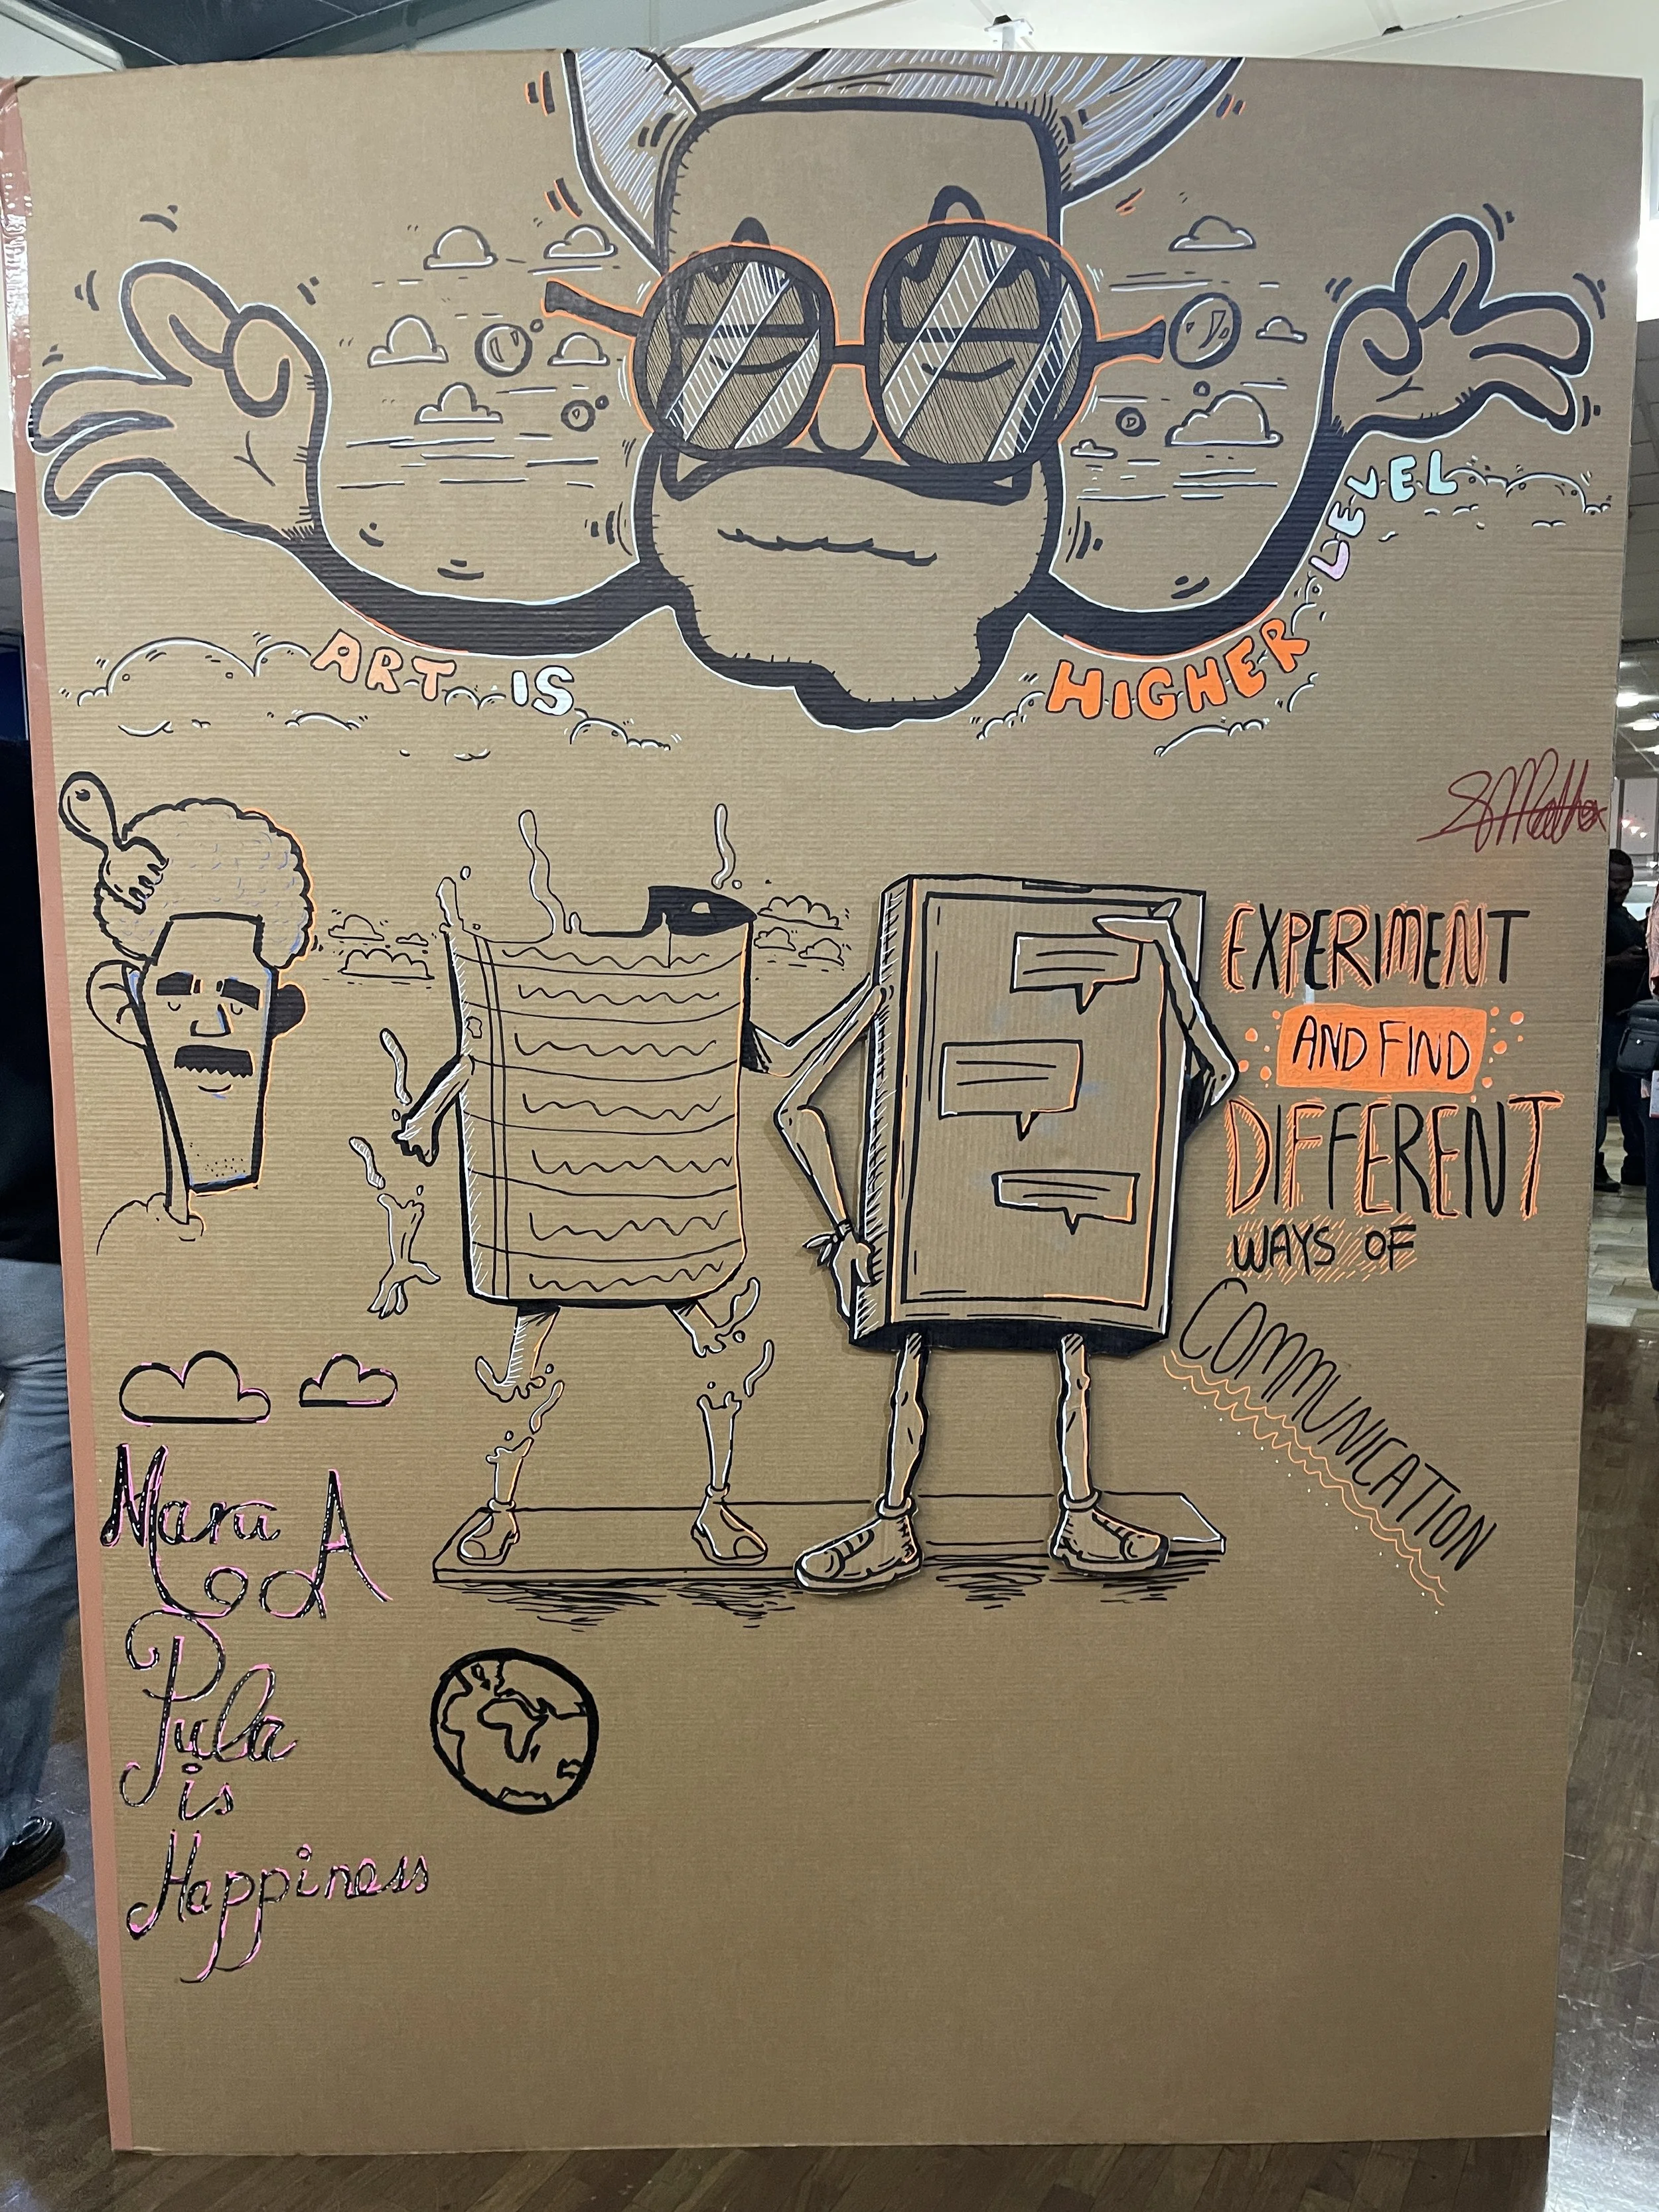 ART IS HIGHER LEVEL
EXPERIMENT
AND FIND
DIFFERENT
WAYS OF
COMMUNICATION
Maru A
Pula
is
Happiness